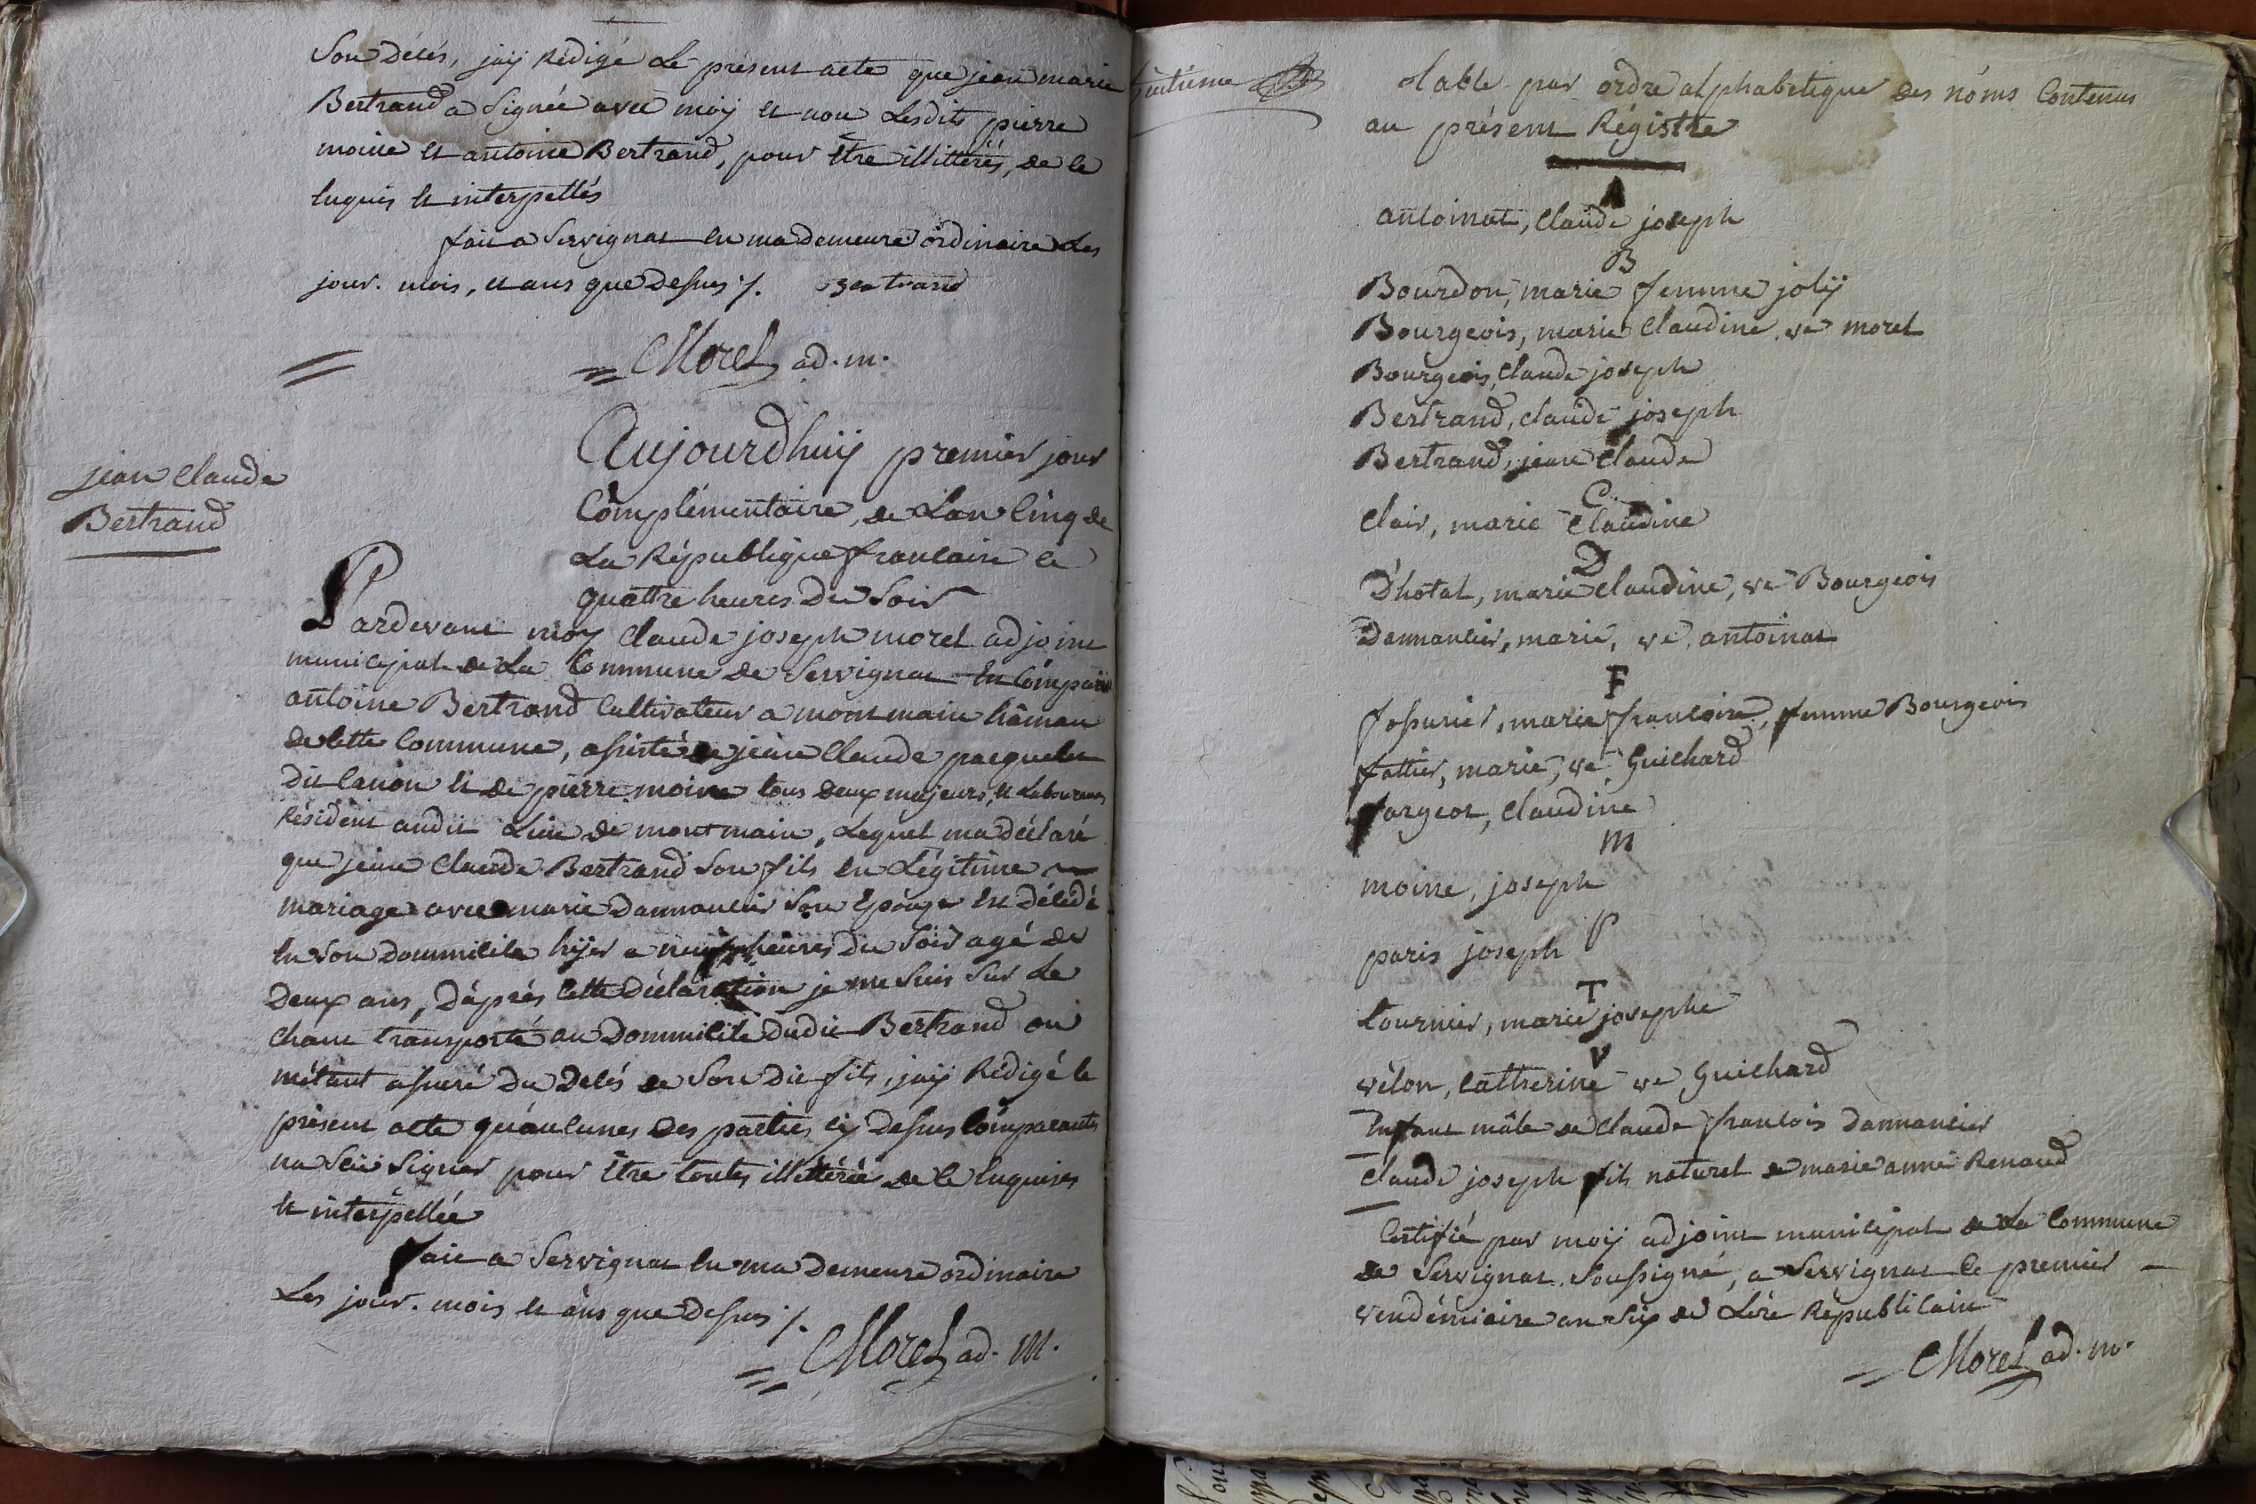 Son Décés, jaÿ Rédigé Le présent acte que jean marie
Bertrand a Signée avec moÿ et non Lesdits pierre
moine et antoine Bertrand, pour être illittérés, de ce
enquis et interpellés
fait a Servignat en ma demeure ordinaire Les
jour. mois, et ans que Dessus ⁒. Bertrand
CMorel ad. m.
jean Claude
Bertrand
Aujourdhuÿ premier jour
Complémentaire, de Lan Cinq de
La République francaise a
quattre heures Du Soir
Pardevant moÿ Claude joseph morel adjoint
municipal de La Commune de Servignat Est Comparu
antoine Bertrand Cultivateur a montmain hâmeau
de Cette Commune, assisté de jean Claude pacquelet
Dit Canon et De pierre moine tous Deux majeurs, et Laboureurs
Résident audit Lieu de montmain, Lequel ma déclaré
que jean Claude Bertrand Son fils en Légitime
mariage avec marie Dannancier Son Epouze Est Décédé
En Son Dommicile hÿer a neuf heures Du Soir agé de
Deux ans, D'aprés Cette Déclaration je me Suis Sur Le
Champ transporté au Dommicile Dudit Bertrand ou
métant assuré Du Décés de Son Dit fils, jaÿ Rédigé le
présent acte qu'aucunes Des parties cÿ Dessus Comparantes
na Sçu Signer pour Etre toutes illittérées de Ce Enquises
et interpellée
fait a Servignat En ma Demeure ordinaire
Les jour. mois et ans que Dessus ⁒.
CMorel ad. M.
huitieme
Table par ordre alphabetique Des noms Contenus
au présent Régistre
A
antoinat, Claude joseph
B
Bourdon, marie femme jolÿ
Bourgeois, marie Claudine, ve morel
Bourgeois, Claude joseph
Bertrand, claude joseph
Bertrand, jean Claude
C
Clair, marie Claudine
D
D'hotal, marie Claudine, ve Bourgeois
Dannancier, marie, ve antoinat
F
fossurier, marie francoise, femme Bourgeois
fattier, marie, ve Guichard
fargeot, Claudine
m
moine, joseph
P
paris joseph
T
tournier, marie josephe
V
vélon, Catherine ve Guichard
Enfant mâle de Claude francois Dannancier
Claude joseph fils naturel de marie anne Renaud
Certifié par moÿ adjoint municipal de La Commune
de Servignat Soussigné, a Servignat le premier
vendémiaire an Six de Lère Républicain
CMorel ad. m.